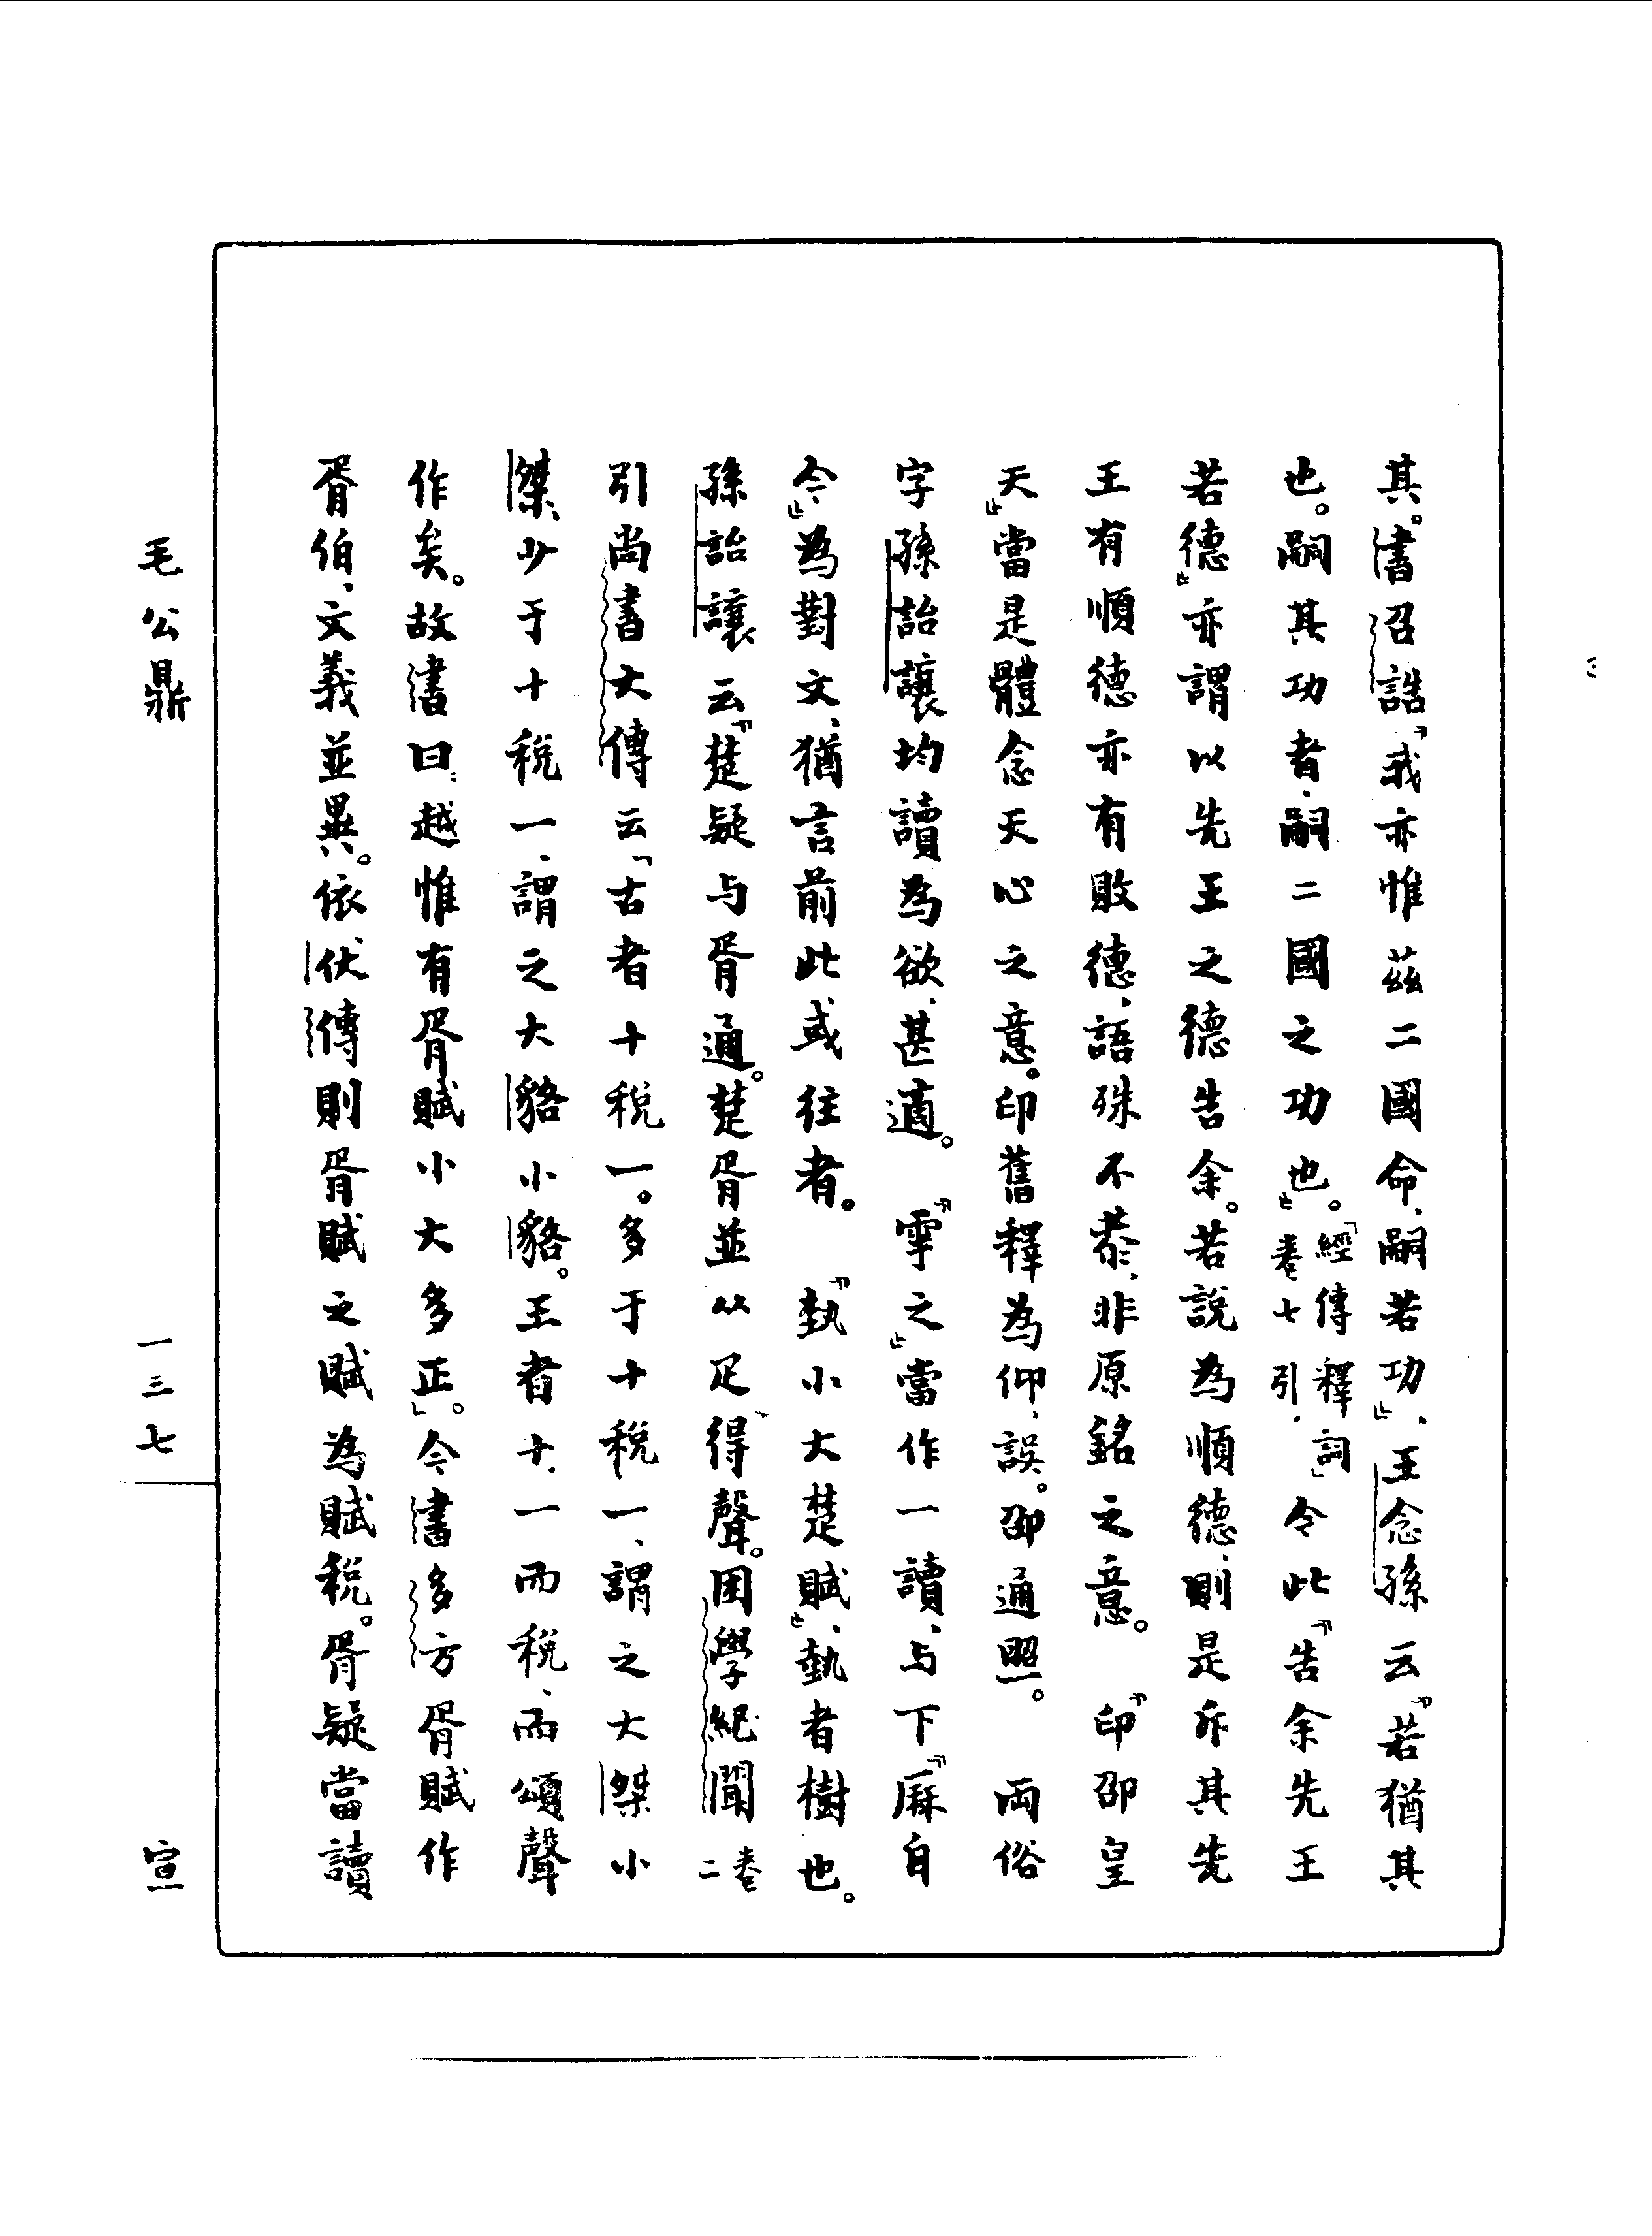 其。書召誥「我亦惟茲二國命，嗣若功」，王念孫云「若猶其
也。嗣其功者，嗣二國之功也」。「經傳釋詞」卷七引，令此「告余先王
若德」亦謂以先王之德告余。若說為順德，則是斥其先
王有順德亦有敗德，語殊不恭，非原銘之意。　「印邵皇
天」當是體念天心之意。印舊釋為仰，誤。邵通照。　兩俗
字孫詒讓均讀為欲，甚適。　「雩之」當作一讀，与下「厤自
今」為對文，猶言前此或往者。　「埶小大楚賦」，埶者樹也。
孫詒讓云「楚疑与胥通。楚胥並从疋得聲。困學紀聞卷二
引尚書大傳云「古者十稅一。多于十稅一，謂之大桀小
桀，少于十稅一，謂之大貉小貉。王者十一而稅，而頌聲
作矣。故書曰：越惟有胥賦小大多正」。今書多方胥賦作
胥伯，文義並異。依伏傳則胥賦之賦為賦稅。胥疑當讀
毛公鼎
一三七
宣